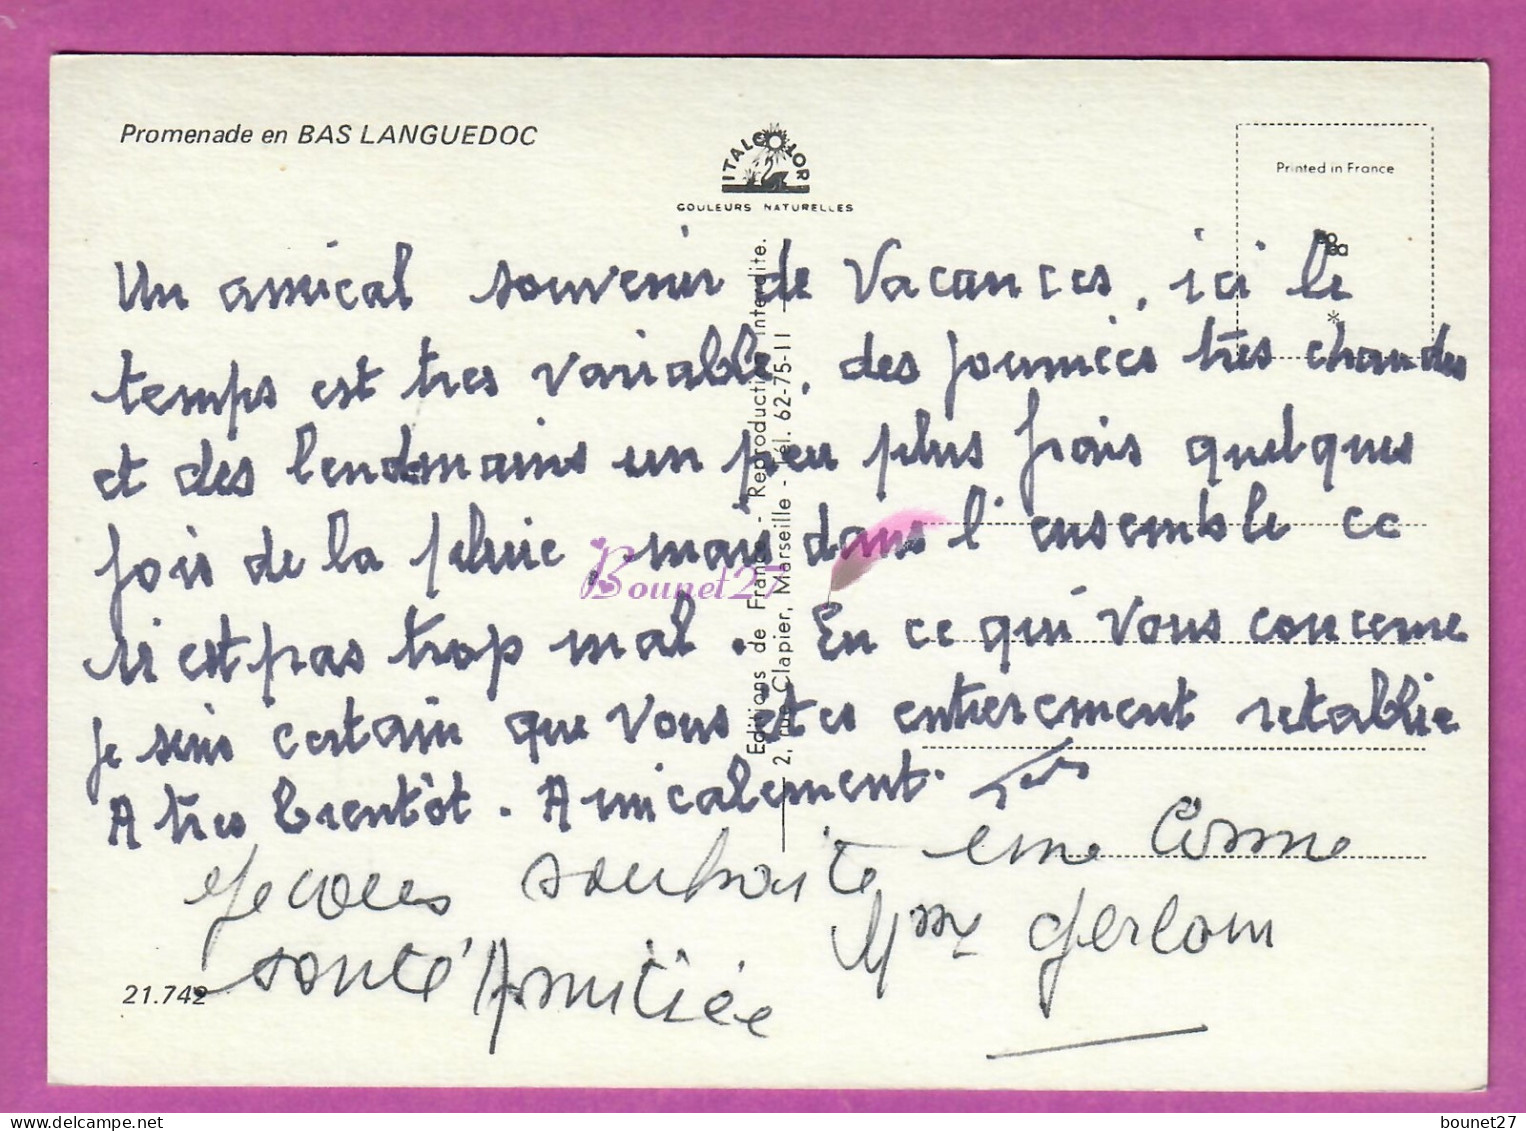 Promenade en BAS LANGUEDOC
ITALCOLOR
COULEURS NATURELLES
Printed in France
Un amical souvenir de Vacances, ici le
*
temps est tres variable, des journées très chaudes
et des lendemains un peu plus frais quelques
fois de la pluie, mais dans l'ensemble ce
n'est pas trop mal. En ce qui vous concerne
je suis certain que vous etes entierement retablie
A tres bientôt. Amicalement.
Je vous souhaite une bonne
santé Amitiée Mme
21.742
Editions de France - Reproduction interdite.
2, rue Clapier, Marseille - Tél. 62-75-11
Bounet27
bounet27